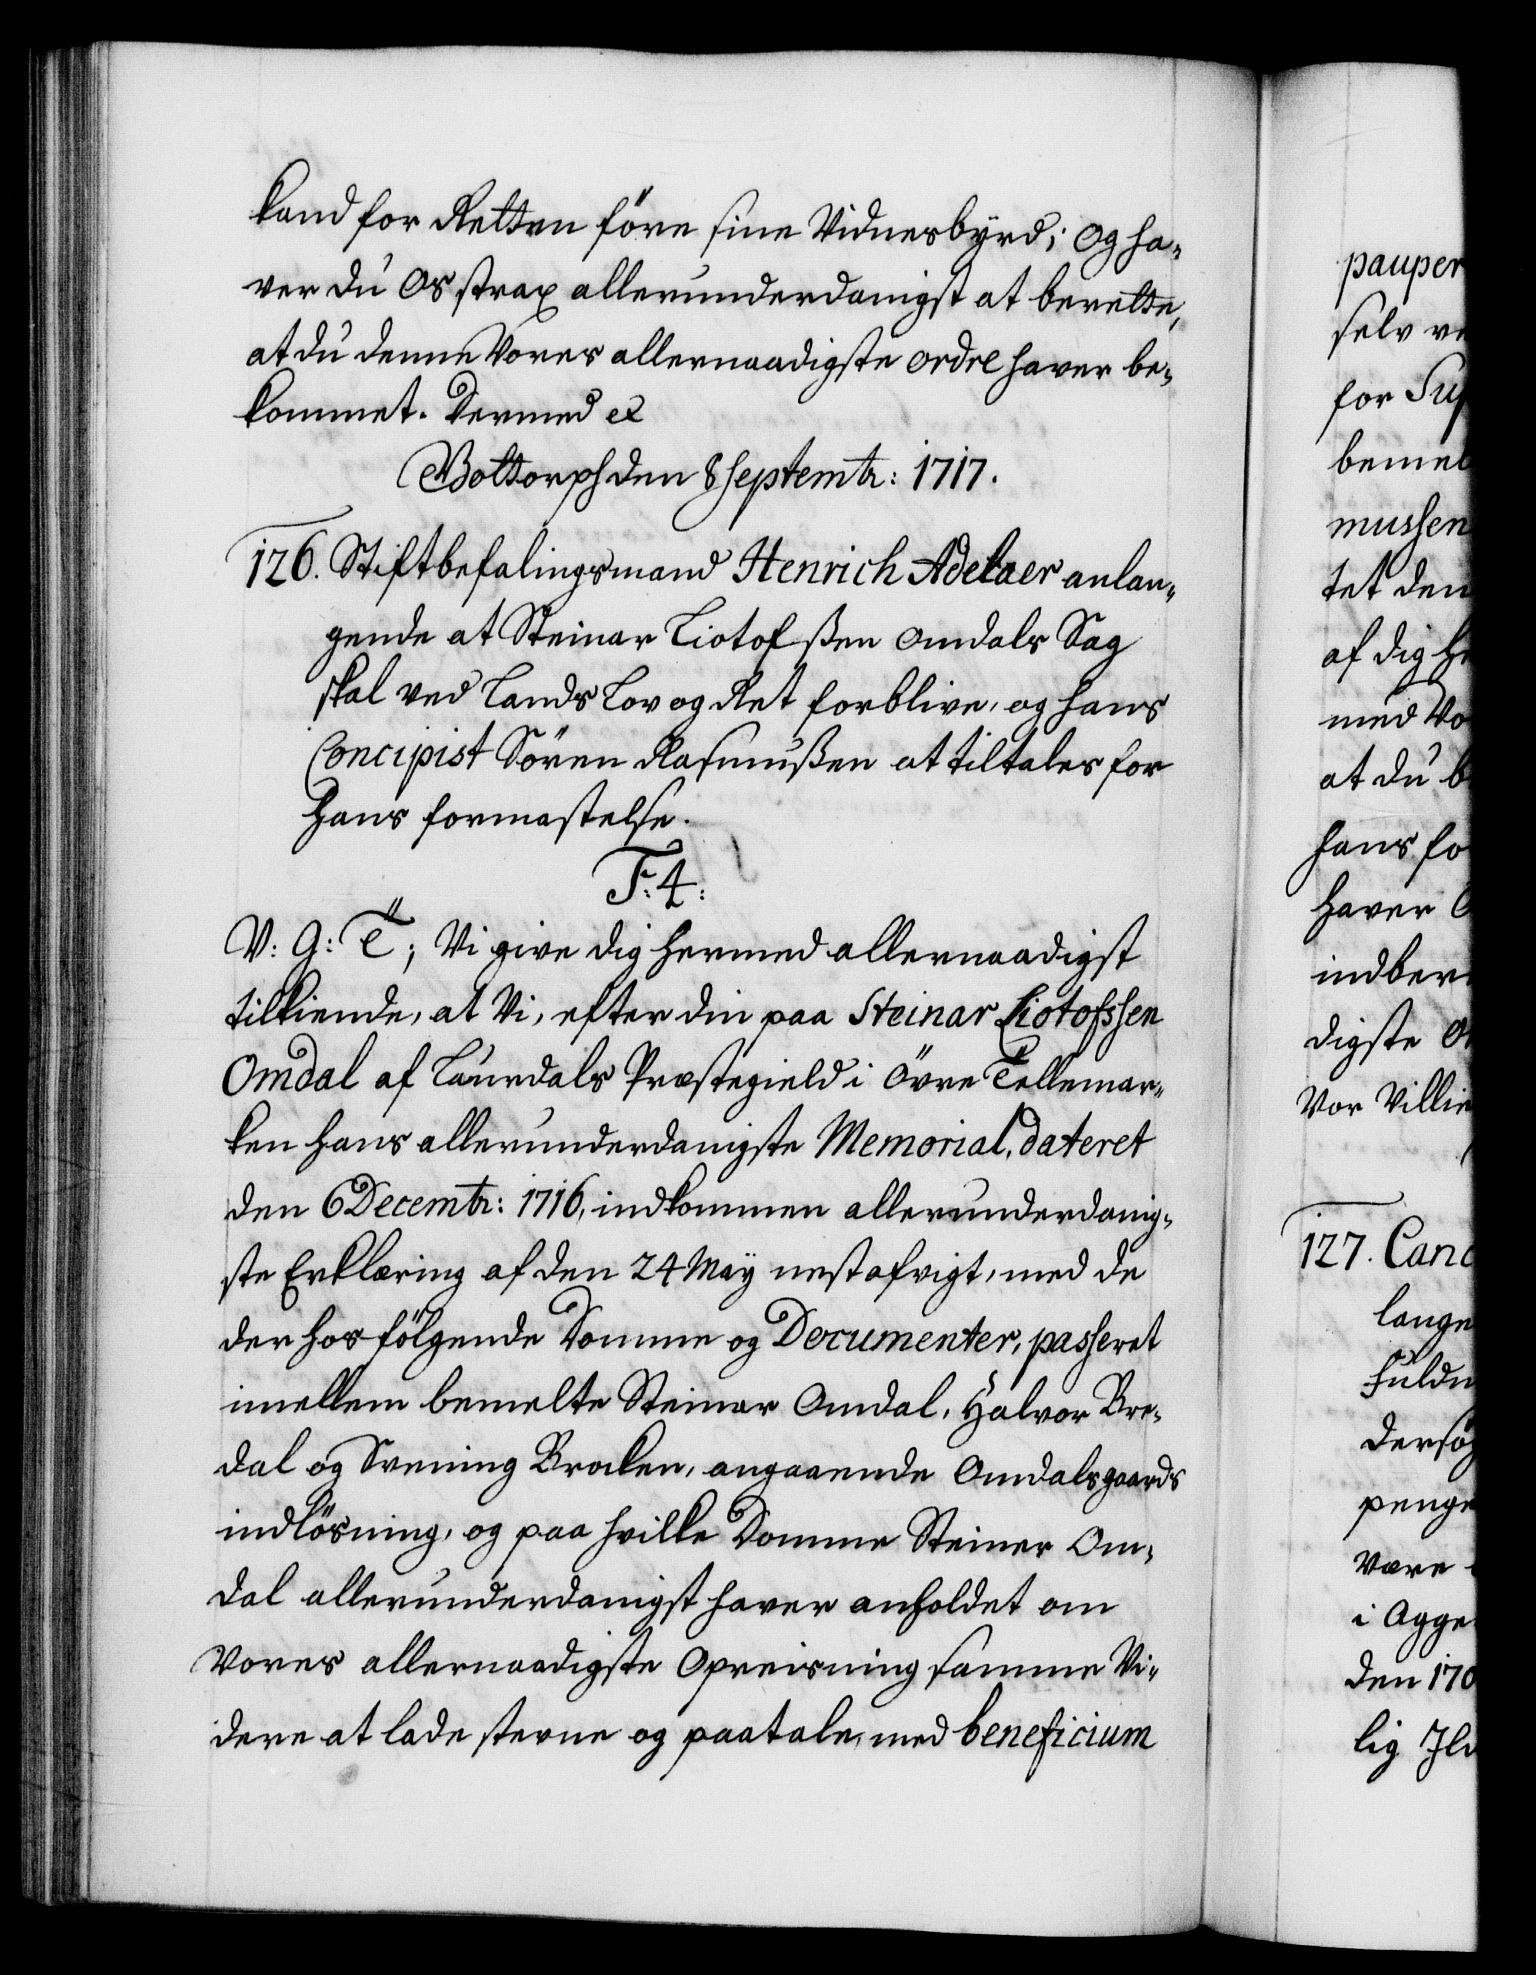 kand for Retten före sine Vidnesbyrd; Og ha-
ver du Os strax allerunderdanigst at berette,
at du denne Vores allernaadigste ordre haver be-
kommet. Dermed etc
Gottorph den 8 Septembr: 1717.
126. Stiftbefalingsmand Henrich Adelaer anlan-
gende at Steinar Liotofßen Omdals Sag
skal ved Lands Lov og Ret forblive, og hans
Concipist Sören Rasmußen at tiltales for
hans formastelse.
F: 4:
V: G: T; Vi give dig hermed allernaadigst
tilkiende, at Vi, efter din paa Steinar Liotofssen
Omdal af Laurdals Præstegield i Övre Tellemar-
ken hans allerunderdanigste Memorial, dateret
den 6 Decembr: 1716, indkommen allerunderdanig-
ste Erklæring af den 24 May nestafvigt, med de
der hos fölgende Domme og Documenter, passeret
imellem bemelte Steinar Omdal, Halvor Bre-
dal og Svening Brocken, angaaende Omdalsgaards
indlösning, og paa hvilke Domme Steiner Om-
dal allerunderdanigst haver anholdet om
Vores allernaadigste Opreisning samme Vi-
dere at lade stevne og paatale, med beneficium
pauper
selv ve
for Sup
bemel
mussen
tet den
af dig he
med Vo
at du b
hans fo
haver O
indber
digste O
Vor Villie
127. Canc
lange
fuldm
dersög
penge
være
i Agge
den 170
lig Ild